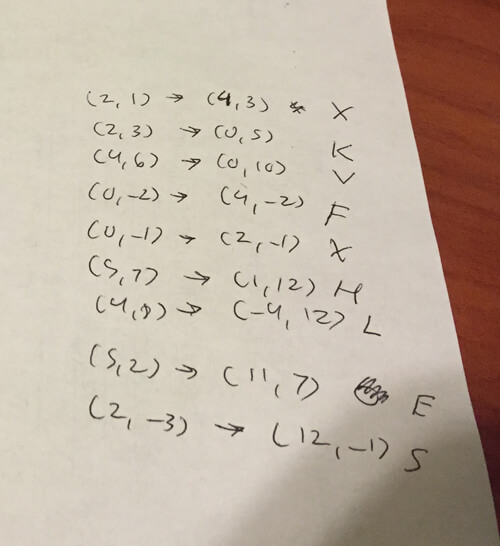 (2, 1) → (4, 3) X
(2, 3) → (0, 5) K
(4, 6) → (0, 10) V
(0, -2) → (4, -2) F
(0, -1) → (2, -1) X
(5, 7) → (1, 12) H
(4, 8) → (-4, 12) L
(5, 2) → (11, 7) E
(2, -3) → (12, -1) S